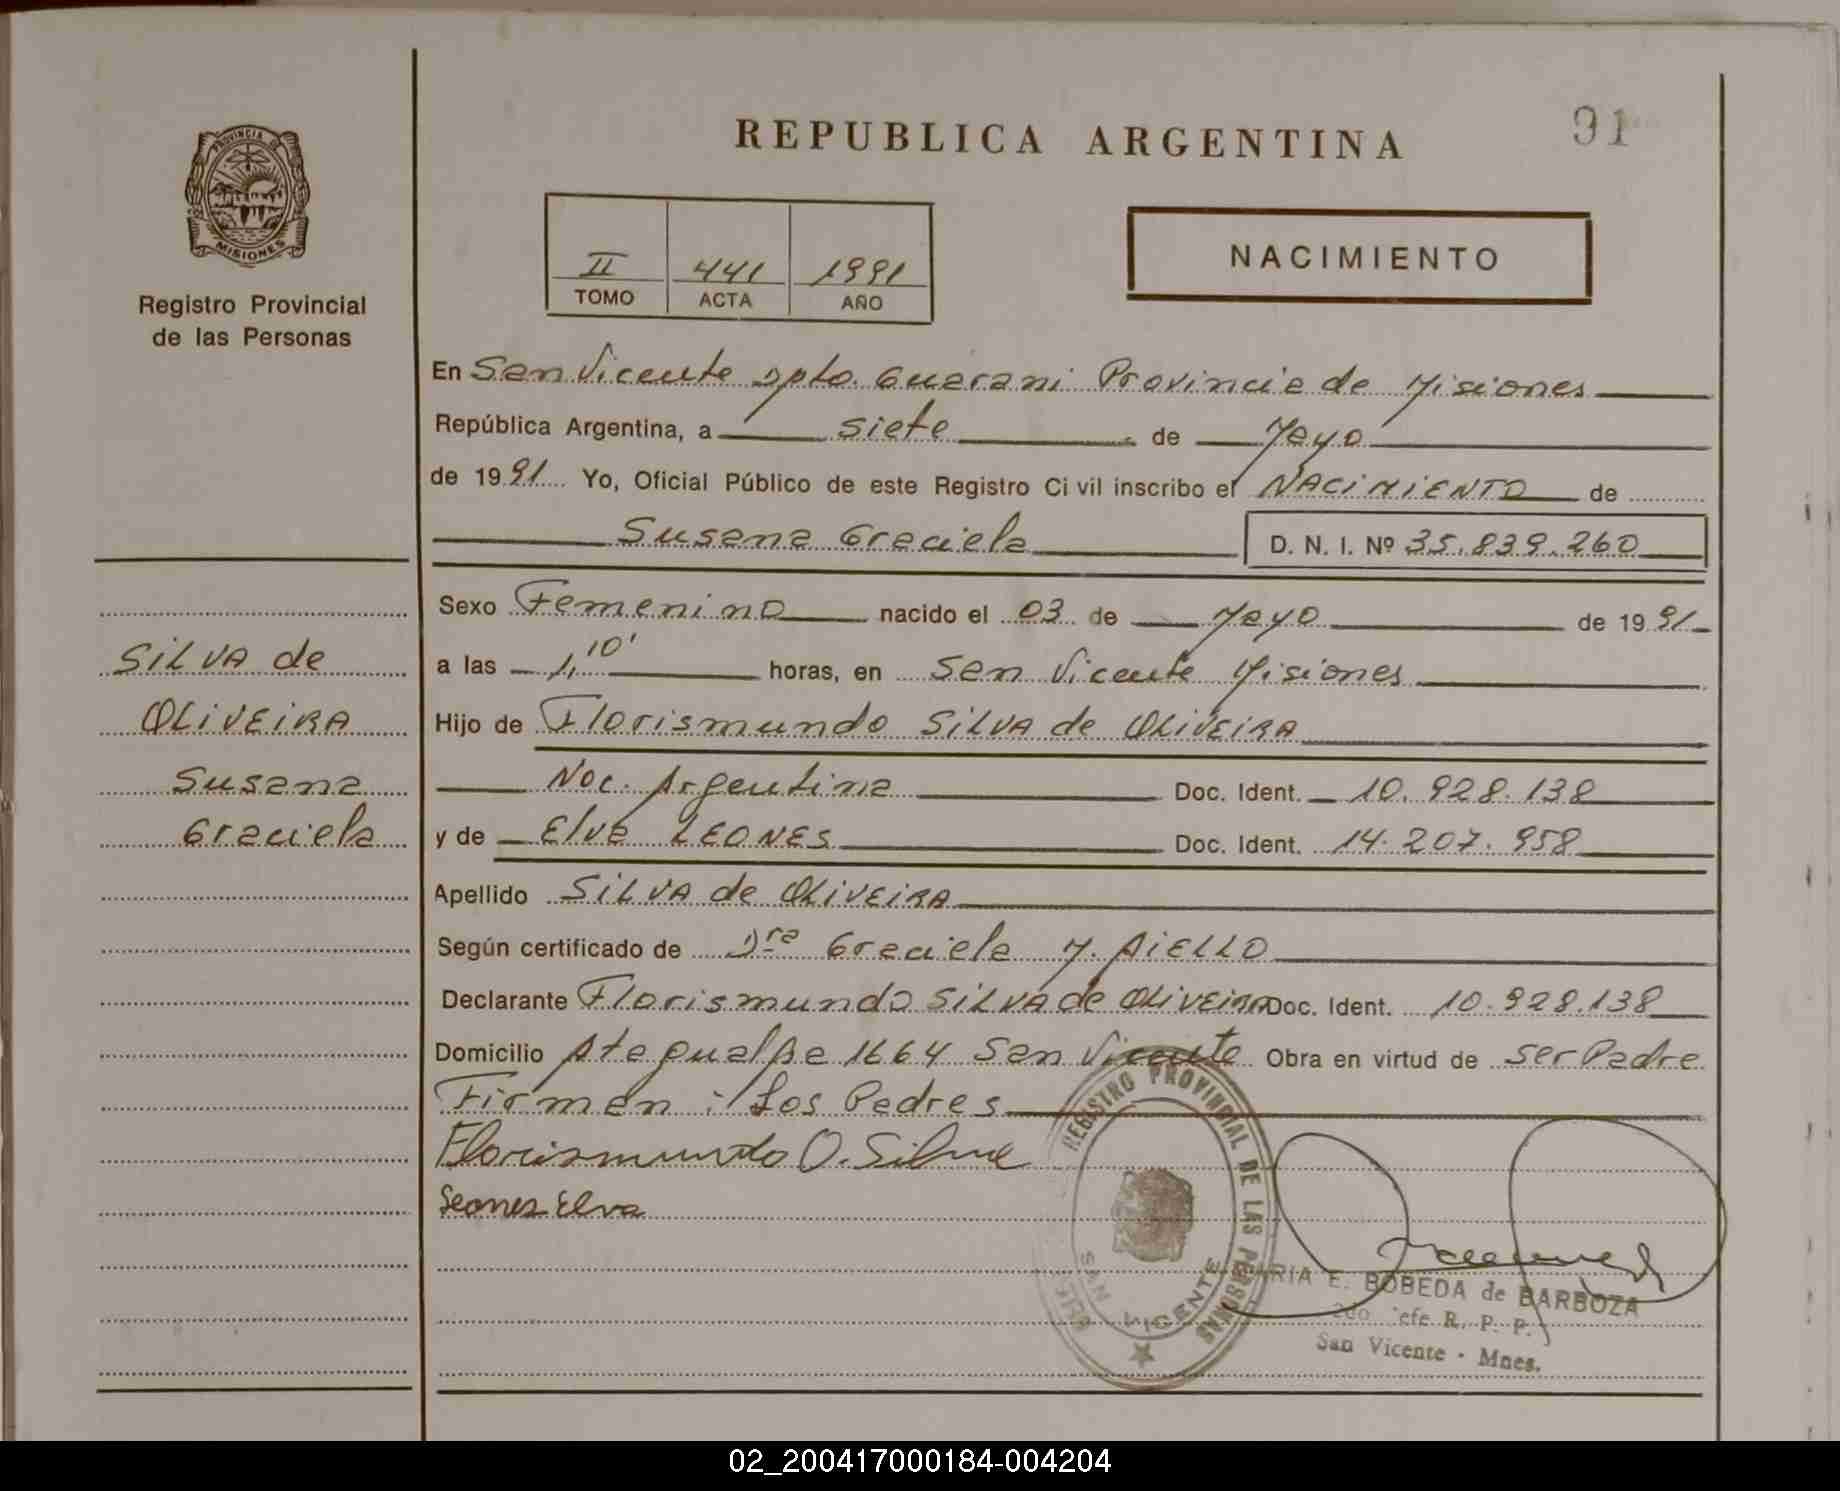 REPUBLICA ARGENTINA
91
PROVINCIA DE
MISIONES
Registro Provincial
de las Personas
II 441 1991
TOMO ACTA AÑO
NACIMIENTO
En San Vicente Dpto. Guarani Provincia de Misiones
República Argentina, a siete de Mayo
de 1991 Yo, Oficial Público de este Registro Civil inscribo el NACIMIENTO de
Susana Graciela D. N. I. Nº 35.839.260
Sexo Femenino nacido el 03 de Mayo de 1991
a las 1,10' horas, en San Vicente Misiones
Hijo de Florismundo SILVA de OLIVEIRA
Nac. Argentina Doc. Ident. 10.928.138
y de Elva LEONES Doc. Ident. 14.207.958
Apellido SILVA de OLIVEIRA
Según certificado de Dra Graciela M. AIELLO
Declarante Florismundo SILVA de OLIVEIRA Doc. Ident. 10.928.138
Domicilio 1664 San Vicente Obra en virtud de ser Padre
Firman: Los Padres
Florismundo O. Silva
Leones Elva
SILVA de
OLIVEIRA
Susana
Graciela
REGISTRO PROVINCIAL DE LAS PERSONAS
SAN VICENTE
MARIA E. BOBEDA de BARBOZA
2do. Jefe R. P. P.
San Vicente - Mnes.
02_200417000184-004204